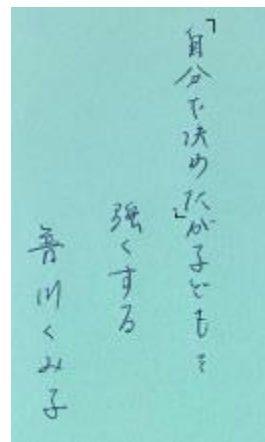 「自分で決めた」が子どもを
強くする
音川くみ子